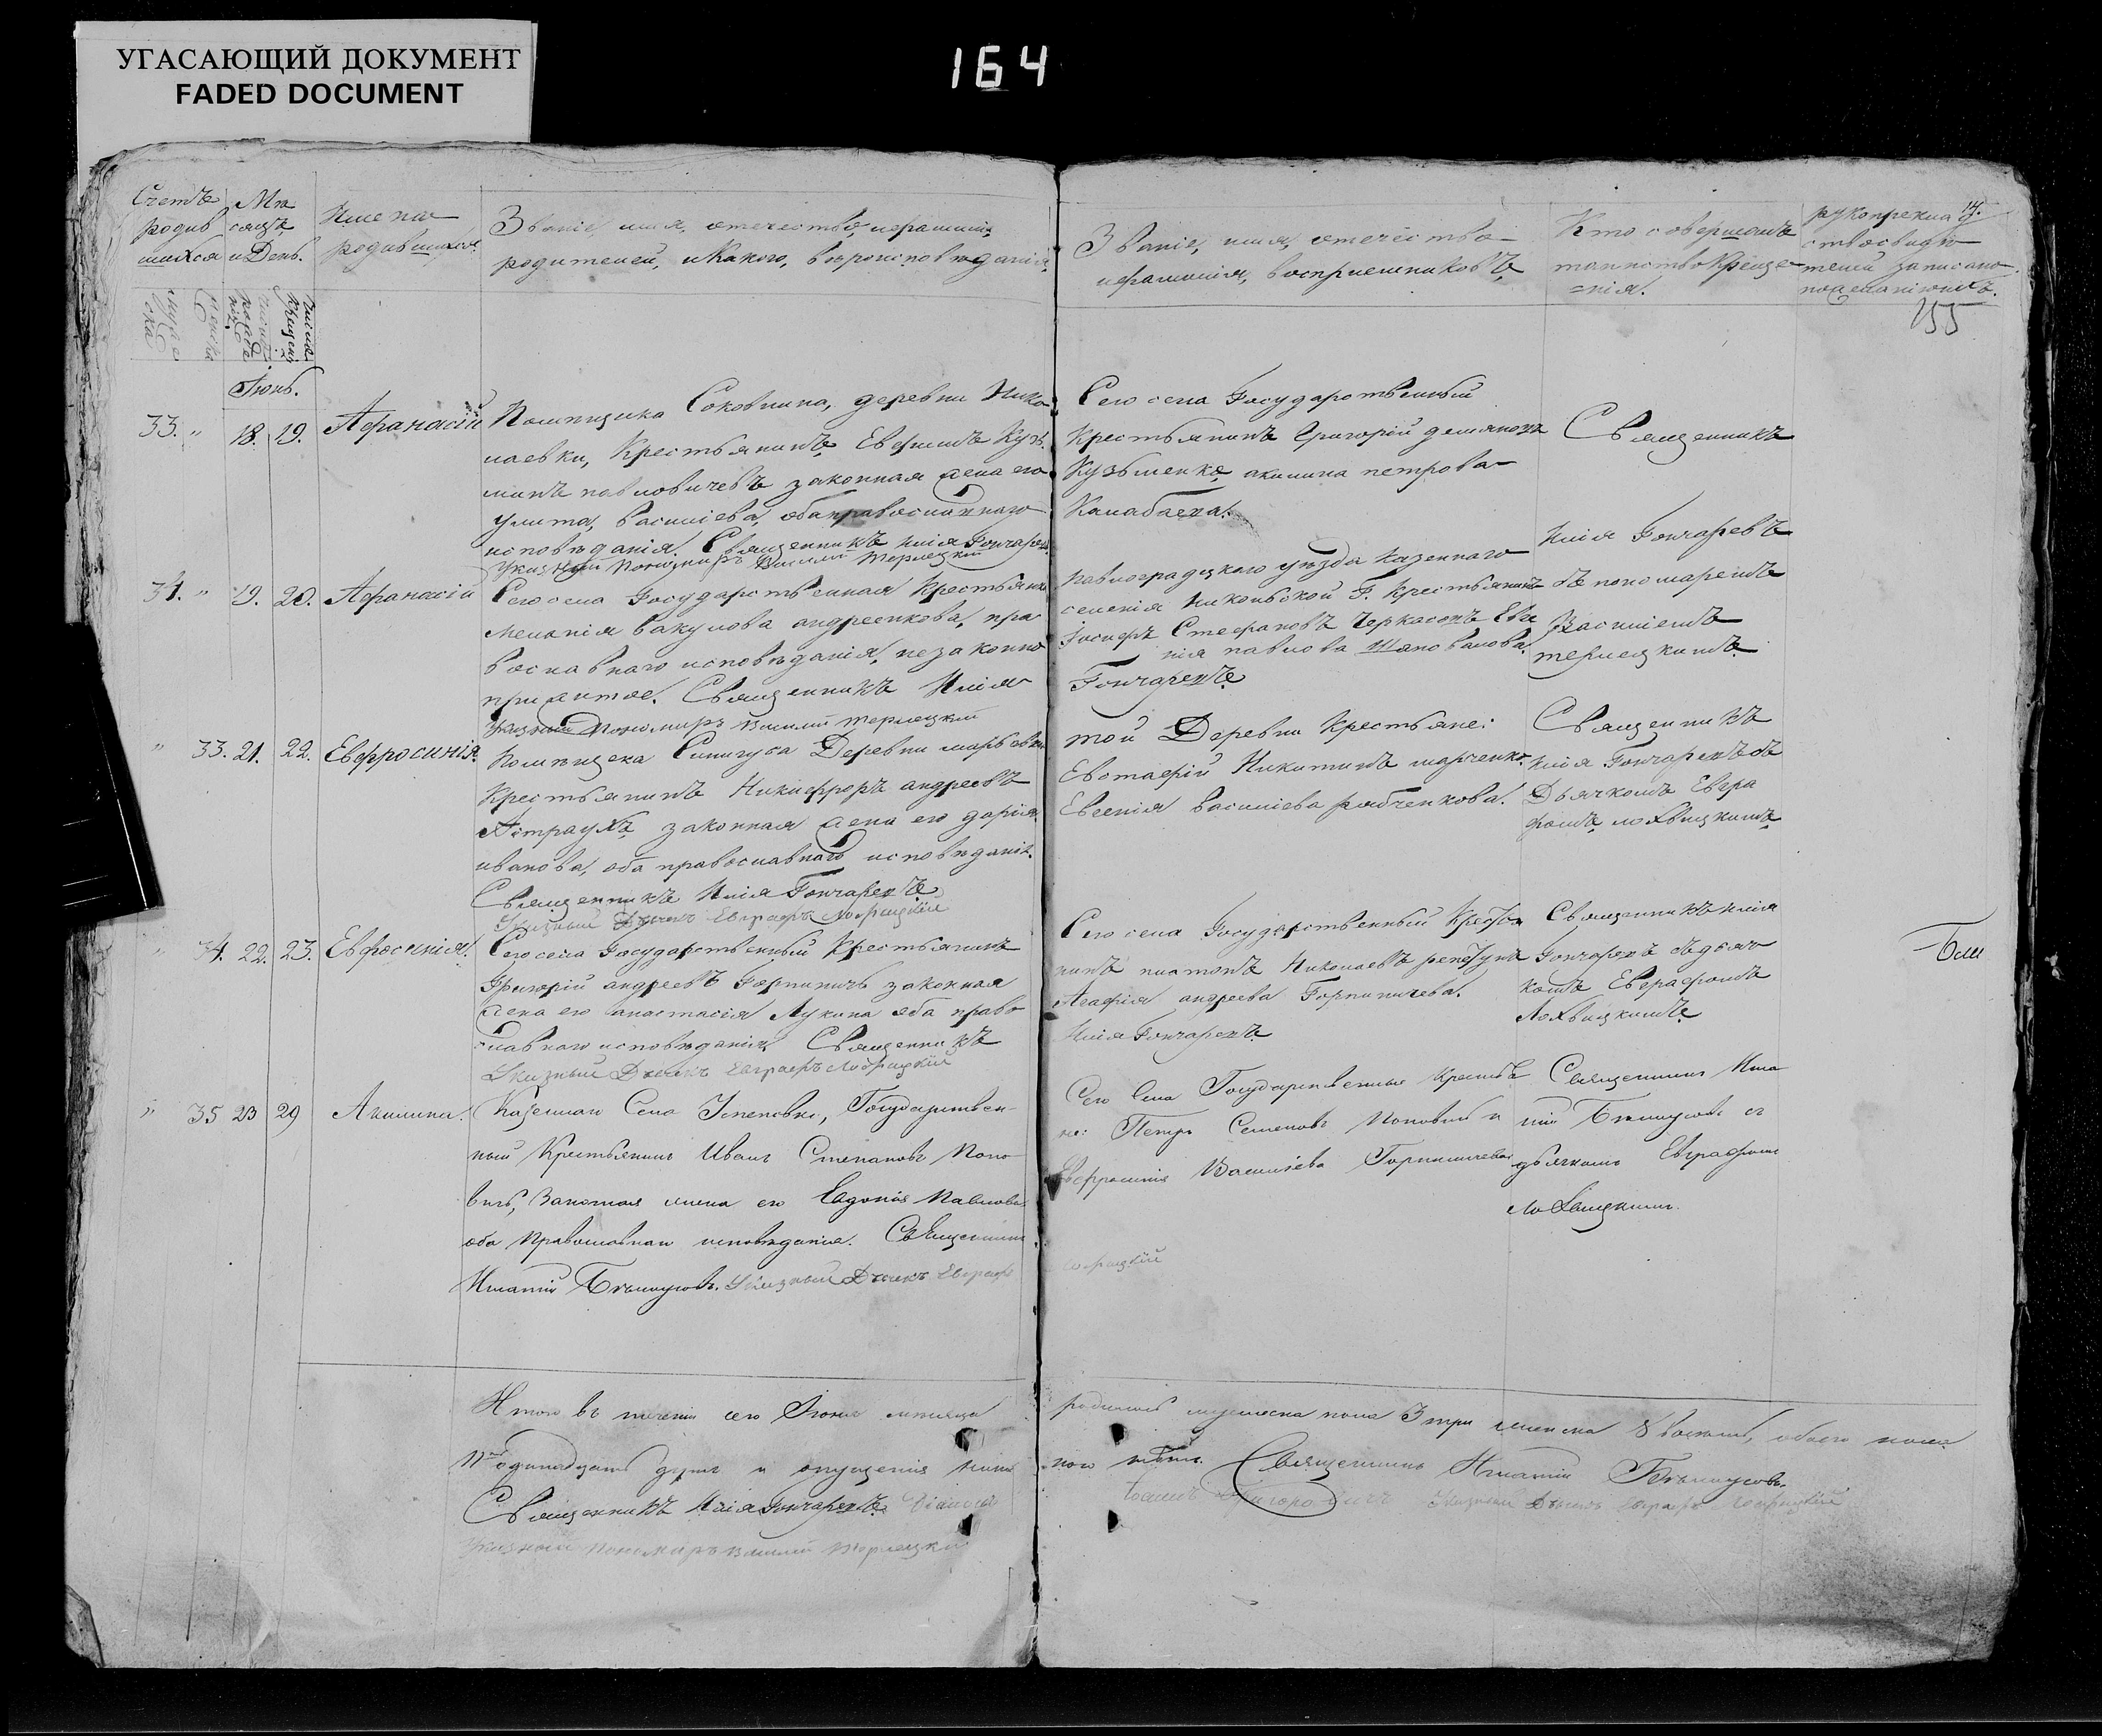 УГАСАЮЩИЙ ДОКУМЕНТ
FADED DOCUMENT
164
Счетъ родив шихся
Мѣ сяцъ и День.
Имена родившихся
Званіе, имя, отечество, ифамилія
родителей, иКакого, вѣроисповѣданія.
Званіе, имя, отечество
ифамилія, воспріемниковъ
Кто совершалъ
таинство Креще
=нія.
рукоприклад
ство свидѣ
телей записано
пожеланію ихъ.
14.
155
Іюнь.
33. " 18. 19. Афанасій
Помѣщика Соковнина, деревни Нико
лаевки, Крестьянинъ Ефимъ Куз
минъ павловичевъ законная жена его
улита, василіева, оба православнаго
исповѣданія. Священникъ Илія Гончаревъ
Указный Пономарь Василій Терлецкій
Сего села Государственный
Крестьянинъ Григорій демяновъ
Кузьменко акилина петрова
Калабаева.
Священникъ
Илія Гончаревъ
съ пономаремъ
Василіемъ
терлецкимъ
34. " 19. 20. Афанасій
Сего села Государственная Крестьянка
Меланія вакулова андреенкова, пра
вославнаго исповѣданія, незаконно
прижитое. Священникъ Илія
Указный Пономарь Василій Терлецкій
павлоградскаго уѣзда казеннаго
селенія Никольской Г. Крестьянинъ
Іосифъ Стефановъ Черкасовъ Евге
нія павлова Шаповалова.
Гончаревъ
" 33. 21. 22. Евфросинія.
Помѣщека Синигуба Деревни марьевки
Крестьянинъ Никифоръ андреевъ
Астраухъ законная жена его дарія
иванова, оба православнаго исповѣданія.
Священникъ Илія Гончаревъ
Указный Дьячекъ Евграфъ Лофицкій
той Деревни Крестьяне:
Евстафій Никитинъ марченко.
Евгенія василіева рябченкова.
Священникъ
Илія Гончаревъ съ
Дьячкомъ Евгра
фомъ лохвицкимъ
" 34. 22. 23. Евфосинія.
Сего села Государственный Крестьянинъ
Григорій андреевъ Горпиничъ законная
жена его анастасія Лукина оба право
славнаго исповѣданія Священникъ
Указный Дьячекъ Евграфъ Лофицкій
Сего села Государственный Крестья
нинъ платонъ Николаевъ репетунъ
Агафія андреева Горпиничева.
Илія Гончаревъ
Священникъ илія
Гончаревъ съ дьяч
комъ Евграфомъ
Лохвицкимъ
" 35 23 29 Акилина.
Казеннаго Села Успеновки, Государствен-
ный Крестьянинъ Иванъ Степановъ Попо
вичъ, Законная жена его Евдокія Павлова
оба Православнаго исповѣданія. Священникъ
Игнатій Бѣлоусовъ. Указный Дьячекъ Евграфъ
Сего Села Государственные Крестья
не: Петръ Семеновъ Поповичъ и
Евфросинія Василіева Горпиничева
Лофицкій
Священникъ Игна
тій Бѣлоусовъ съ
дьячкомъ Евграфомъ
Лохвицкимъ.
Итого въ теченіи сего Іюня мѣсяца
родилось мужеска пола 3 три женска 8 восемь, обоего пола
одинадцать душъ и опущенія ника
кого нѣтъ. Священникъ Игнатій Бѣлоусовъ.
Священникъ Илія Гончаревъ Діаконъ
Указный Дьячекъ Евграфъ Лофицкій
Указный Пономарь Василій Терлецкій